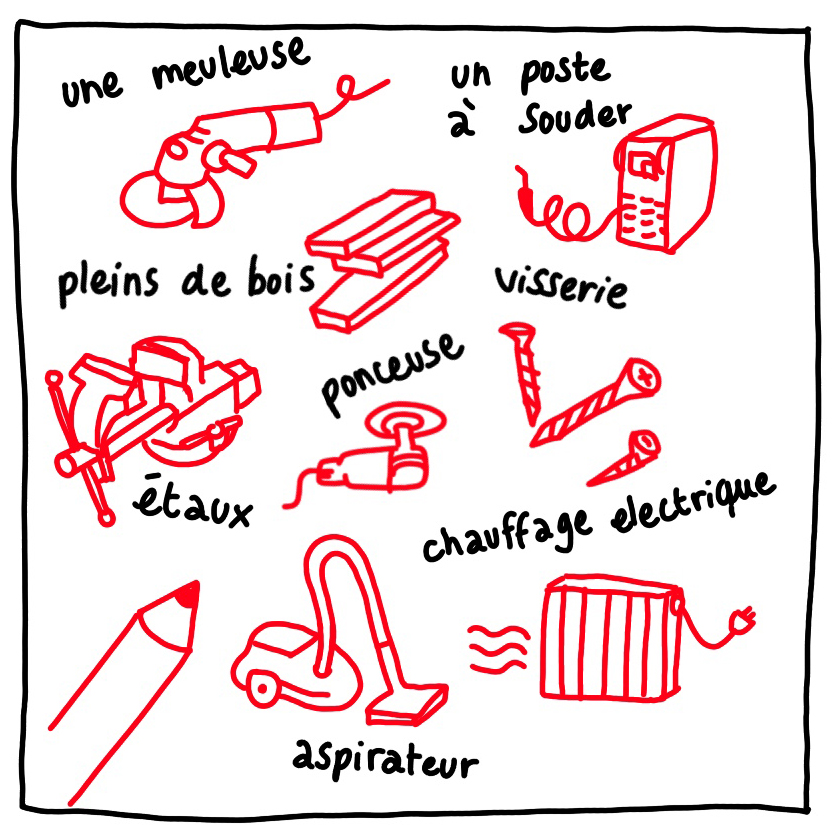 une meuleuse
un poste
à souder
pleins de bois
visserie
ponceuse
étaux
chauffage electrique
aspirateur